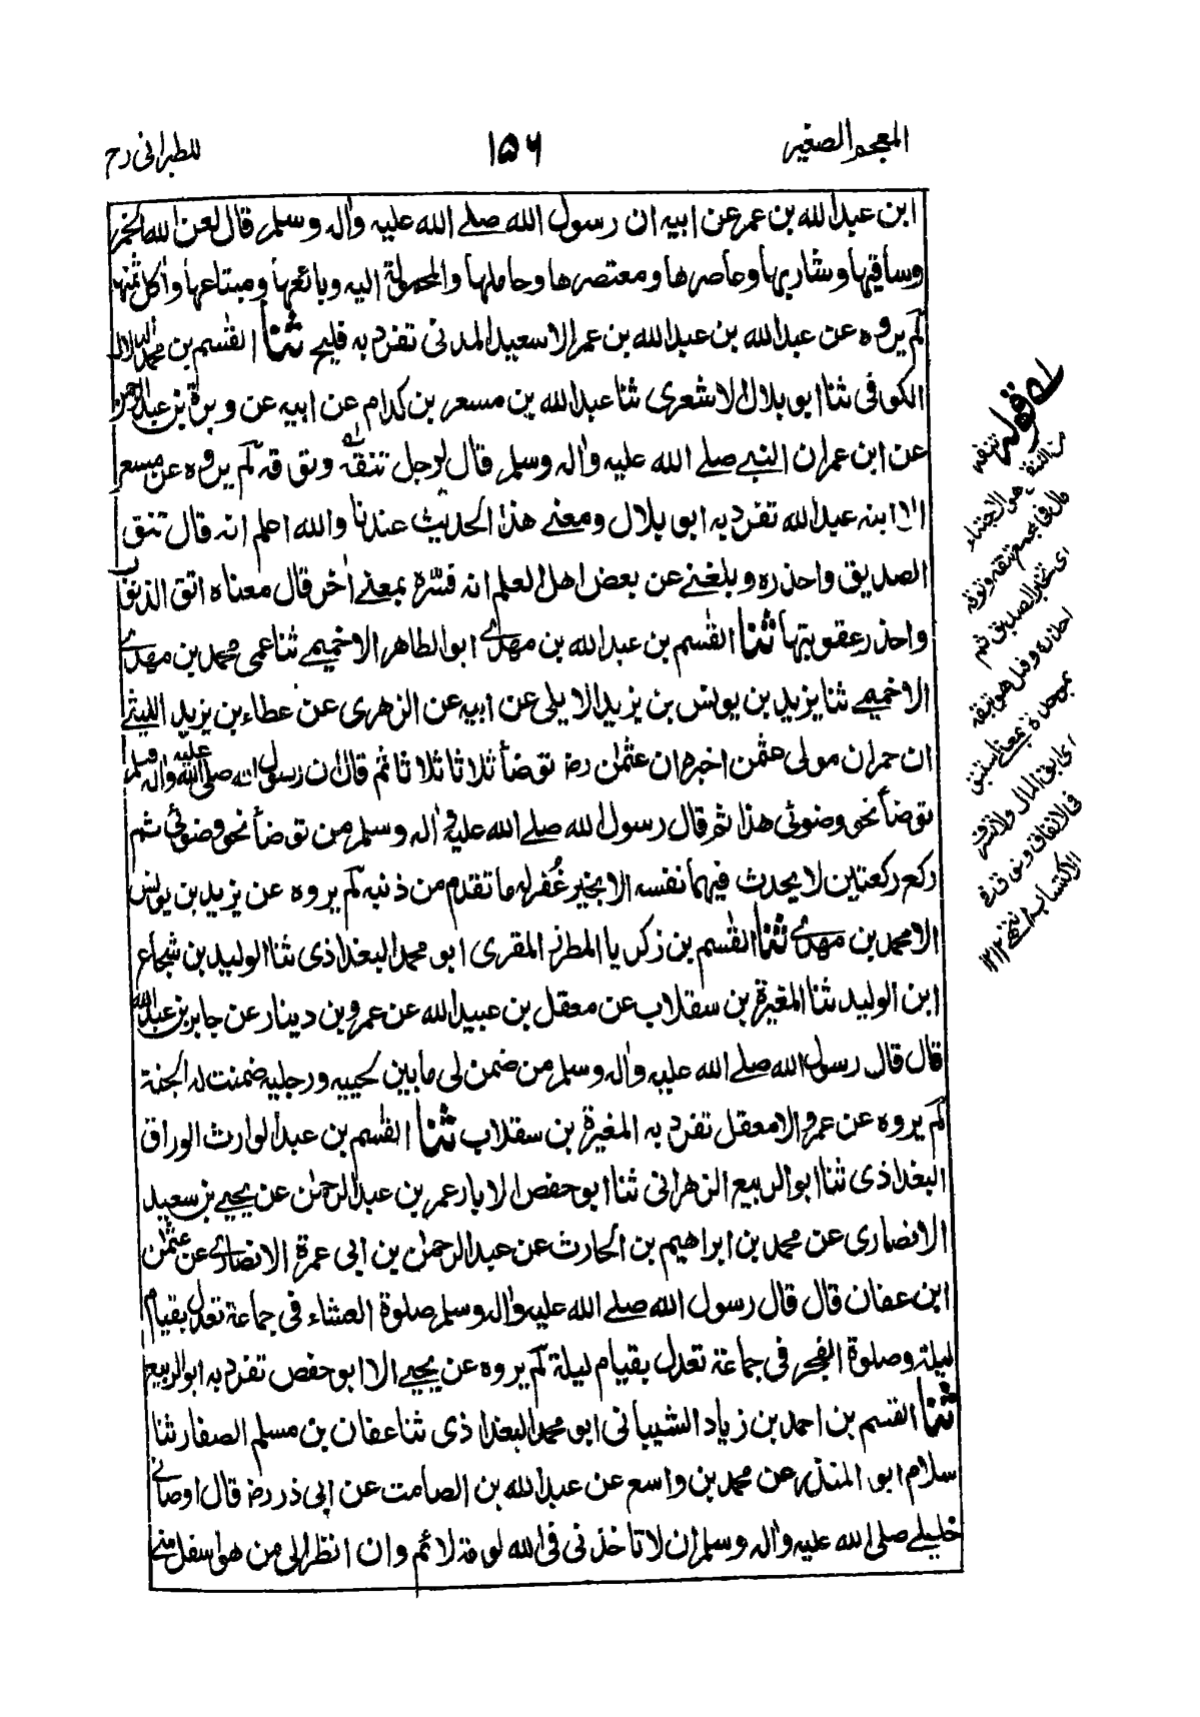 المعجم الصغير
١٥٦
للطبرانى رح
ابن عبد الله بن عمر عن ابيه ان رسول الله صلے الله عليه واٰله وسلم قال لعن الله الخمر
وساقيها وشاربها وعاصرها ومعتصرها وحاملها والمحمولة اليه وبائعها ومبتاعها واٰكل ثمنها
لم يروه عن عبد الله بن عبد الله بن عمر الا سعيد المدنى تفرد به فليح ثنا القٰسم بن محمد الدلال
الكوفى ثنا ابو بلال الاشعرى ثنا عبد الله بن مسعر بن كدام عن ابيه عن وبرة بن عبد الرحمن
عن ابن عمر ان النبے صلے الله عليه واٰله وسلم قال لرجل تنقه وتوقه لم يروه عن مسعر
الا ابنه عبد الله تفرد به ابو بلال ومعنے هذا الحديث عندنا والله اعلم انه قال تنق
الصديق واحذره وبلغنے عن بعض اهل العلم انه فسّره بمعنے اٰخر قال معناه اتق الذنوب
واحذر عقوبتها ثنا القٰسم بن عبد الله بن مهدے ابو الطاهر الاخميمے ثنا عمى محمد بن مهدے
الاخميمے ثنا يزيد بن يونس بن يزيد الايلى عن ابيه عن الزهرى عن عطاء بن يزيد الليثے
ان حمران مولى عثمٰن اخبره ان عثمٰن رض توضأ ثلاثا ثلاثا ثم قال ان رسول الله صلى الله عليه واٰله وسلم
توضأ نحو وضوئى هذا ثم قال رسول الله صلے الله عليه واٰله وسلم من توضأ نحو وضوئى ثم
ركع ركعتين لا يحدث فيهما نفسه الا بخير غُفر له ما تقدم من ذنبه لم يروه عن يزيد بن يونس
الا محمد بن مهدے ثنا القٰسم بن زكريا المطرز المقرى ابو محمد البغداذى ثنا الوليد بن شجاع
ابن الوليد ثنا المغيرة بن سقلاب عن معقل بن عبيد الله عن عمرو بن دينار عن جابر بن عبد الله
قال قال رسول الله صلے الله عليه واٰله وسلم من ضمن لى ما بين لحييه ورجليه ضمنت له الجنة
لم يروه عن عمرو الا معقل تفرد به المغيرة بن سقلاب ثنا القٰسم بن عبد الوارث الوراق
البغداذى ثنا ابو الربيع الزهرانى ثنا ابو حفص الابار عمر بن عبد الرحمٰن عن يحيے بن سعيد
الانصارى عن محمد بن ابراهيم بن الحارث عن عبد الرحمٰن بن ابى عمرة الانصارے عن عثمٰن
ابن عفان قال قال رسول الله صلے الله عليه واٰله وسلم صلوة العشاء فى جماعة تعدل بقيام
ليلة وصلوة الفجر فى جماعة تعدل بقيام ليلة لم يروه عن يحيے الا ابو حفص تفرد به ابو الربيع
ثنا القٰسم بن احمد بن زياد الشيبانى ابو محمد البغداذى ثنا عفان بن مسلم الصفار ثنا
سلام ابو المنذر عن محمد بن واسع عن عبد الله بن الصامت عن ابى ذر رض قال اوصانے
خليلے صلى الله عليه واٰله وسلم ان لا تاخذنى فى الله لومة لائم وان انظر الى من هو اسفل منے
له قوله تنقه
من التنقے هو الاجتباء
قال فى مجمع تنقه وتوقه
اى تخير الصديق ثم
احذره وقيل هو تبقه
بموحدة بمعنے استبق
اى ابق المال ولا تسرف
فى الانفاق وتوق فى
الاكتساب انتهے ١٢